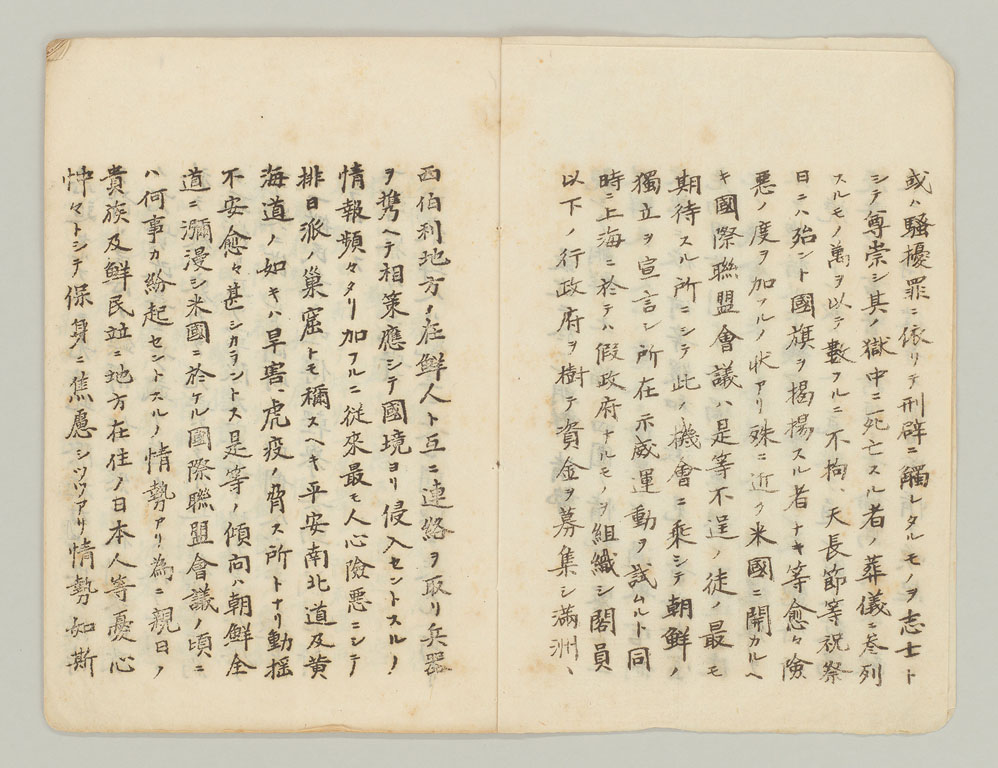 或ハ騷擾罪ニ依リテ刑辟ニ觸レタルモノヲ志士ト
シテ尊崇シ其ノ獄中ニ死亡スル者ノ葬儀ニ叅列
スルモノ萬ヲ以テ數フルニ不拘、天長節等祝祭
日ニハ殆ント國旗ヲ揭揚スル者ナキ等愈々險
惡ノ度ヲ加フルノ狀アリ殊ニ近ク米國ニ開カルヘ
キ國際聯盟會議ハ是等不逞ノ徒ノ最モ
期待スル所ニシテ此ノ機會ニ乘シテ朝鮮ノ
獨立ヲ宣言シ所在示威運動ヲ試ムルト同
時ニ上海ニ於テハ假政府ナルモノヲ組織シ閣員
以下ノ行政府ヲ樹テ資金ヲ募集シ滿洲、
西伯利地方ノ在鮮人ト互ニ連絡ヲ取リ兵器
ヲ携ヘテ相策應シテ國境ヨリ侵入セントスルノ
情報頻々タリ加フルニ從來最モ人心險惡ニシテ
排日派ノ巢窟トモ稱スヘキ平安南北道及黃
海道ノ如キハ旱害、虎疫ノ脅ス所トナリ動搖
不安愈々甚シカラントス是等ノ傾向ハ朝鮮全
道ニ瀰漫シ米國ニ於ケル國際聯盟會議ノ頃ニ
ハ何事カ紛起セントスルノ情勢アリ為ニ親日ノ
貴族及鮮民竝ニ地方在住ノ日本人等憂心
忡々トシテ保身ニ焦慮シツツアリ情勢如斯